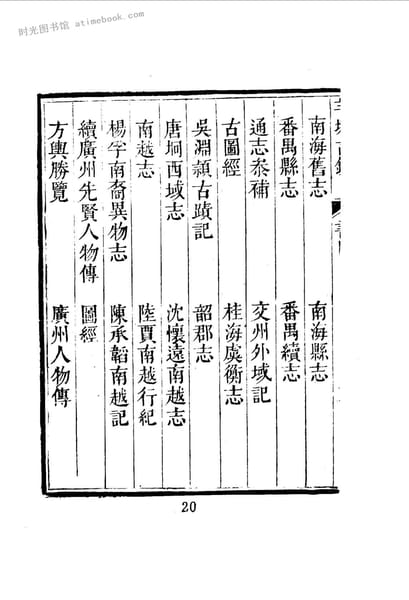 时光图书馆 atimebook.com
南海舊志 南海縣志
番禺縣志 番禺續志
通志叅補 交州外域記
古圖經 桂海虞衡志
吳淵潁古蹟記 韶郡志
唐坰西域志 沈懷遠南越志
南越志 陸賈南越行紀
楊孚南裔異物志 陳承韜南越記
續廣州先賢人物傳 圖經
方輿勝覽 廣州人物傳
20